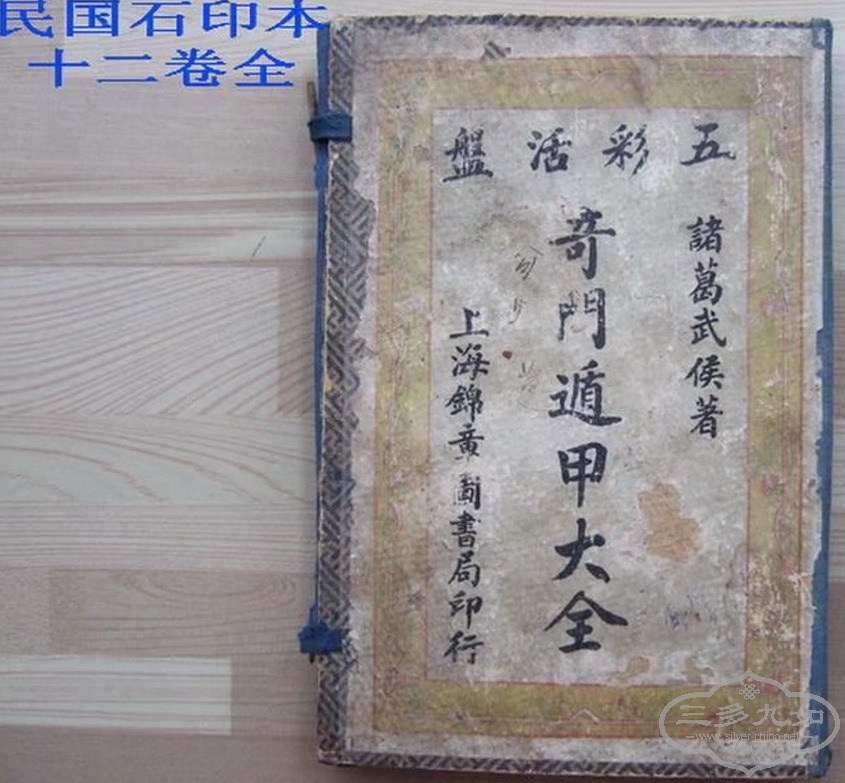 民国石印本
十二卷全
五彩活盤
諸葛武侯著
奇門遁甲大全
上海錦章圖書局印行
三多九如
www.silver-china.net